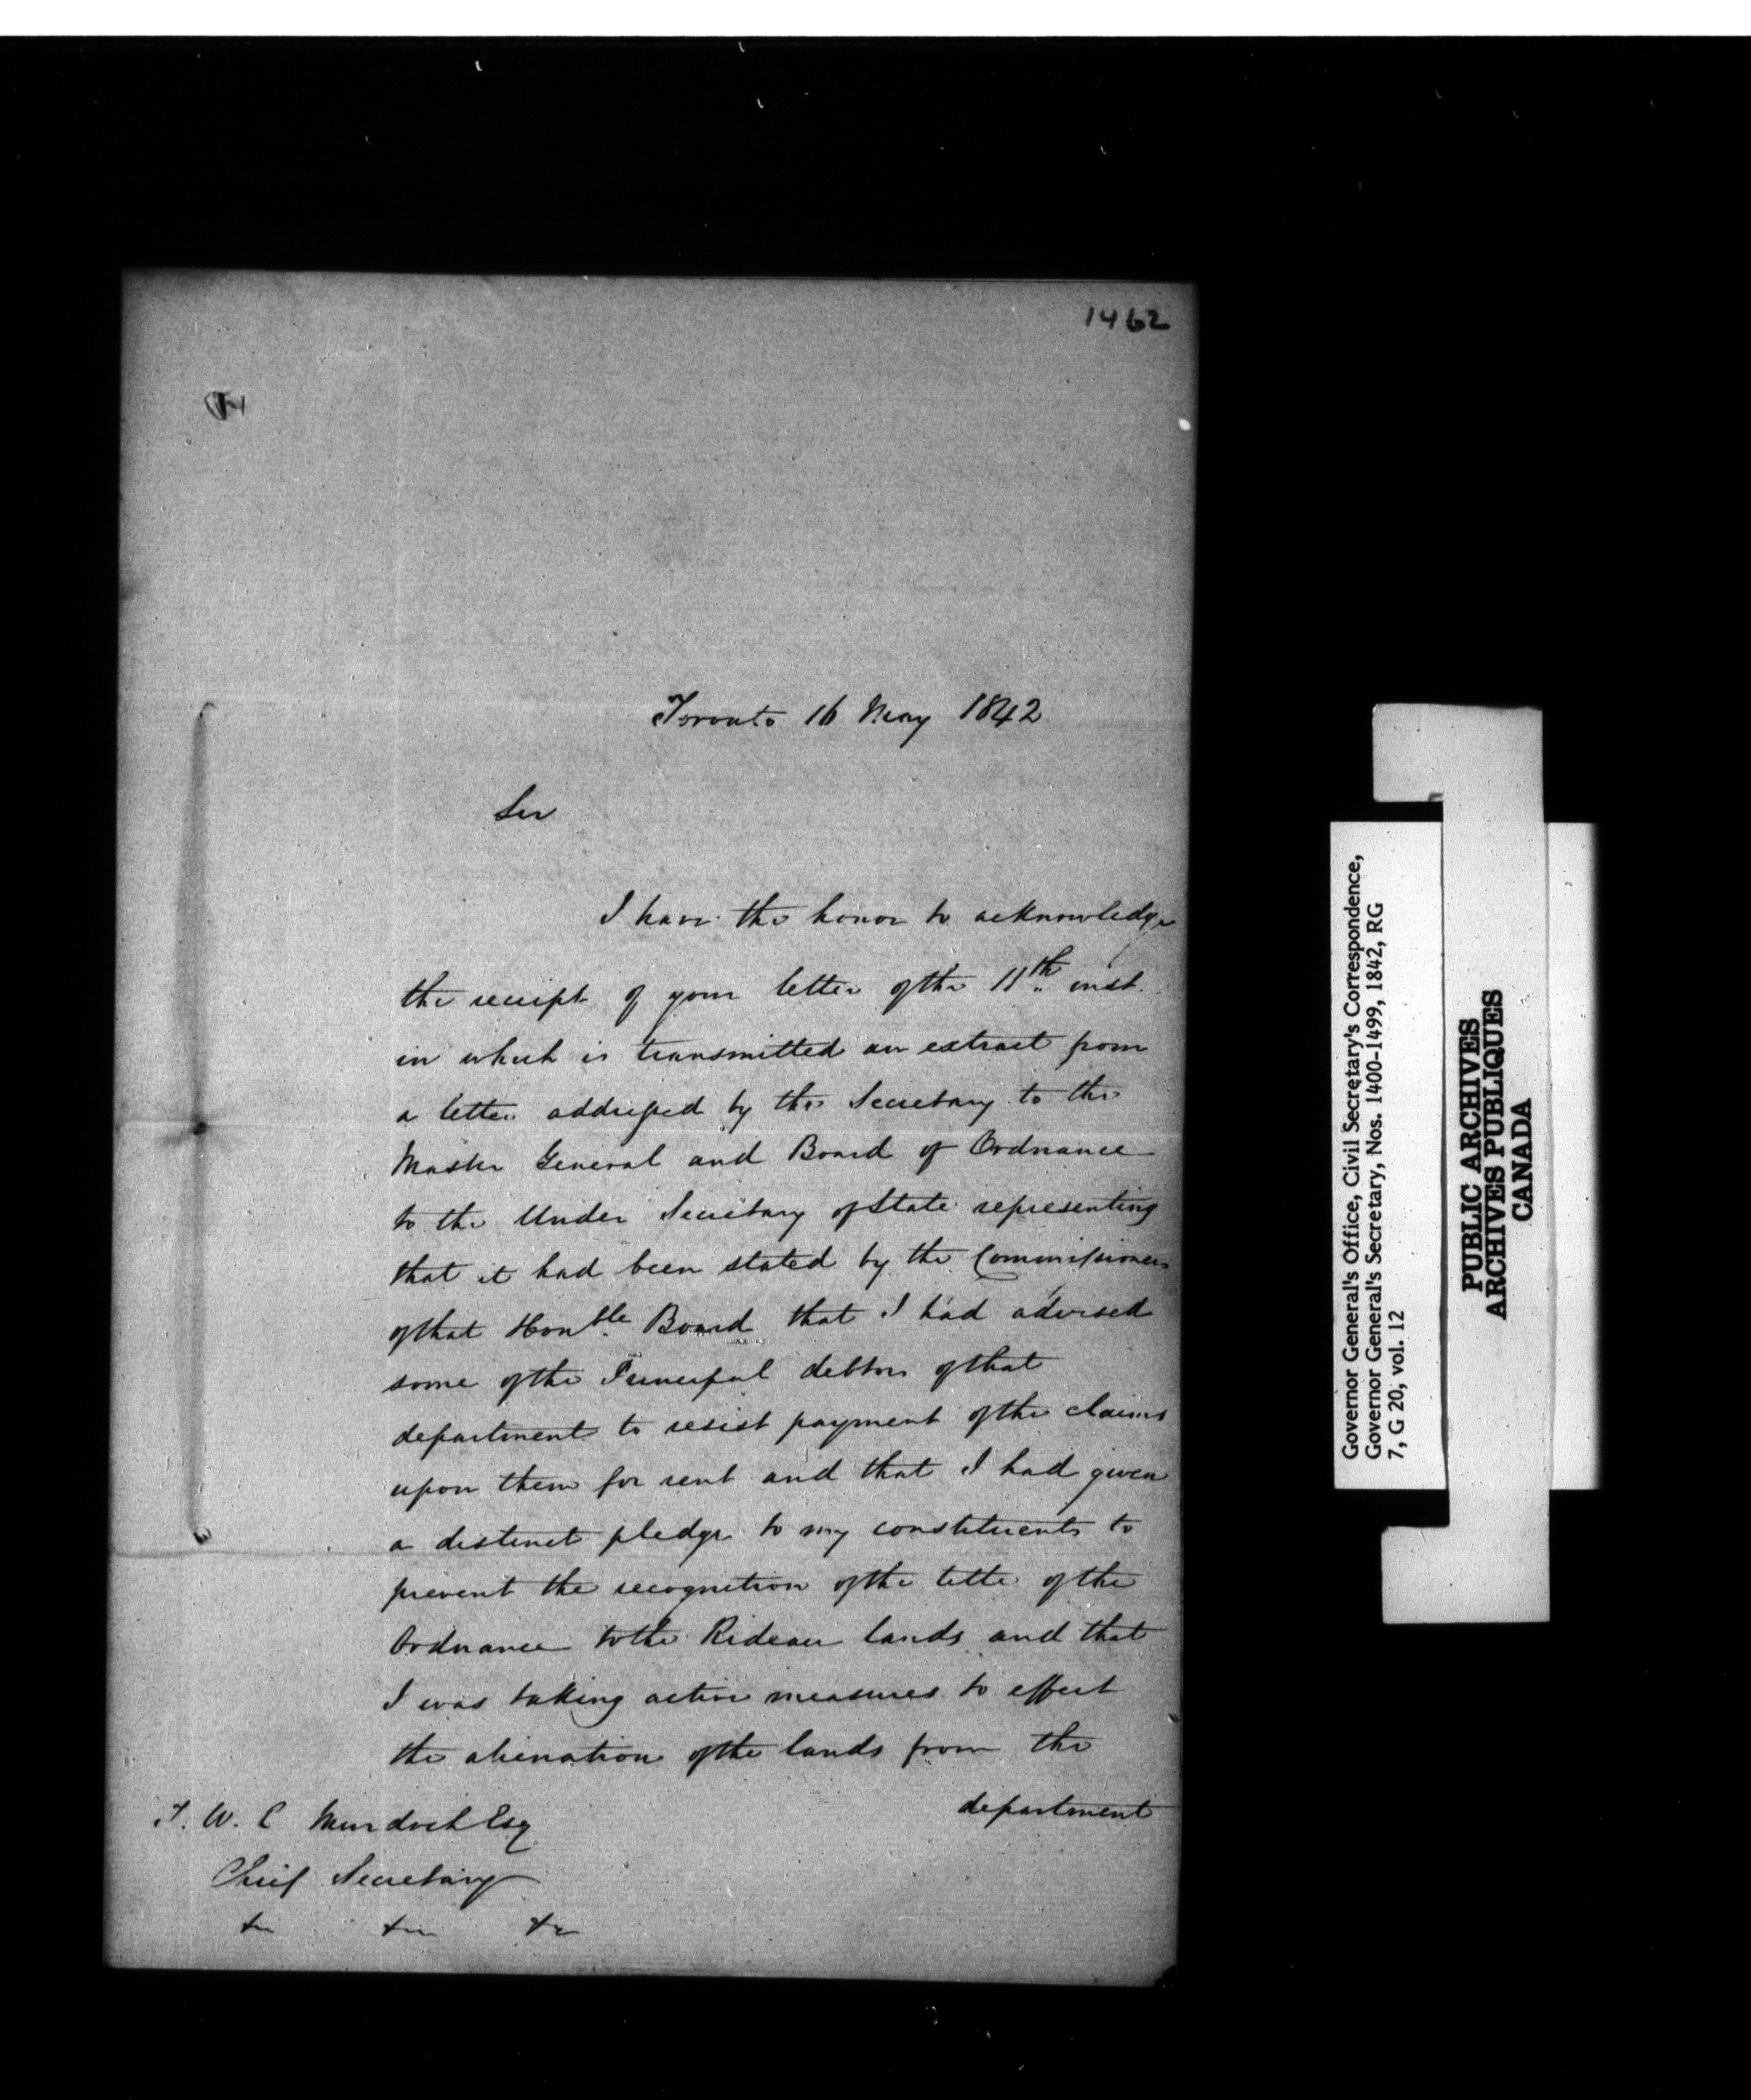 1462
Toronto 16 May 1842
Sir
I have the honor to acknowledge
the receipt of your letter of the 11th inst.
in which is transmitted an extract from
a letter addressed by the Secretary to the
Master General and Board of Ordnance
to the Under Secretary of State representing
that it had been stated by the Commissioners
of that Honble Board that I had advised
some of the Principal debtors of that
department to resist payment of the claims
upon them for rent and that I had given
a distinct pledge to my constituents to
prevent the recognition of the title of the
Ordnance to the Rideau lands and that
I was taking active measures to effect
the alienation of the lands from the
department
T. W. C Murdoch Esq
Chief Secretary
&c &c &c
Governor General's Office, Civil Secretary's Correspondence,
Governor General's Secretary, Nos. 1400-1499, 1842, RG
7, G 20, vol. 12
PUBLIC ARCHIVES
ARCHIVES PUBLIQUES
CANADA